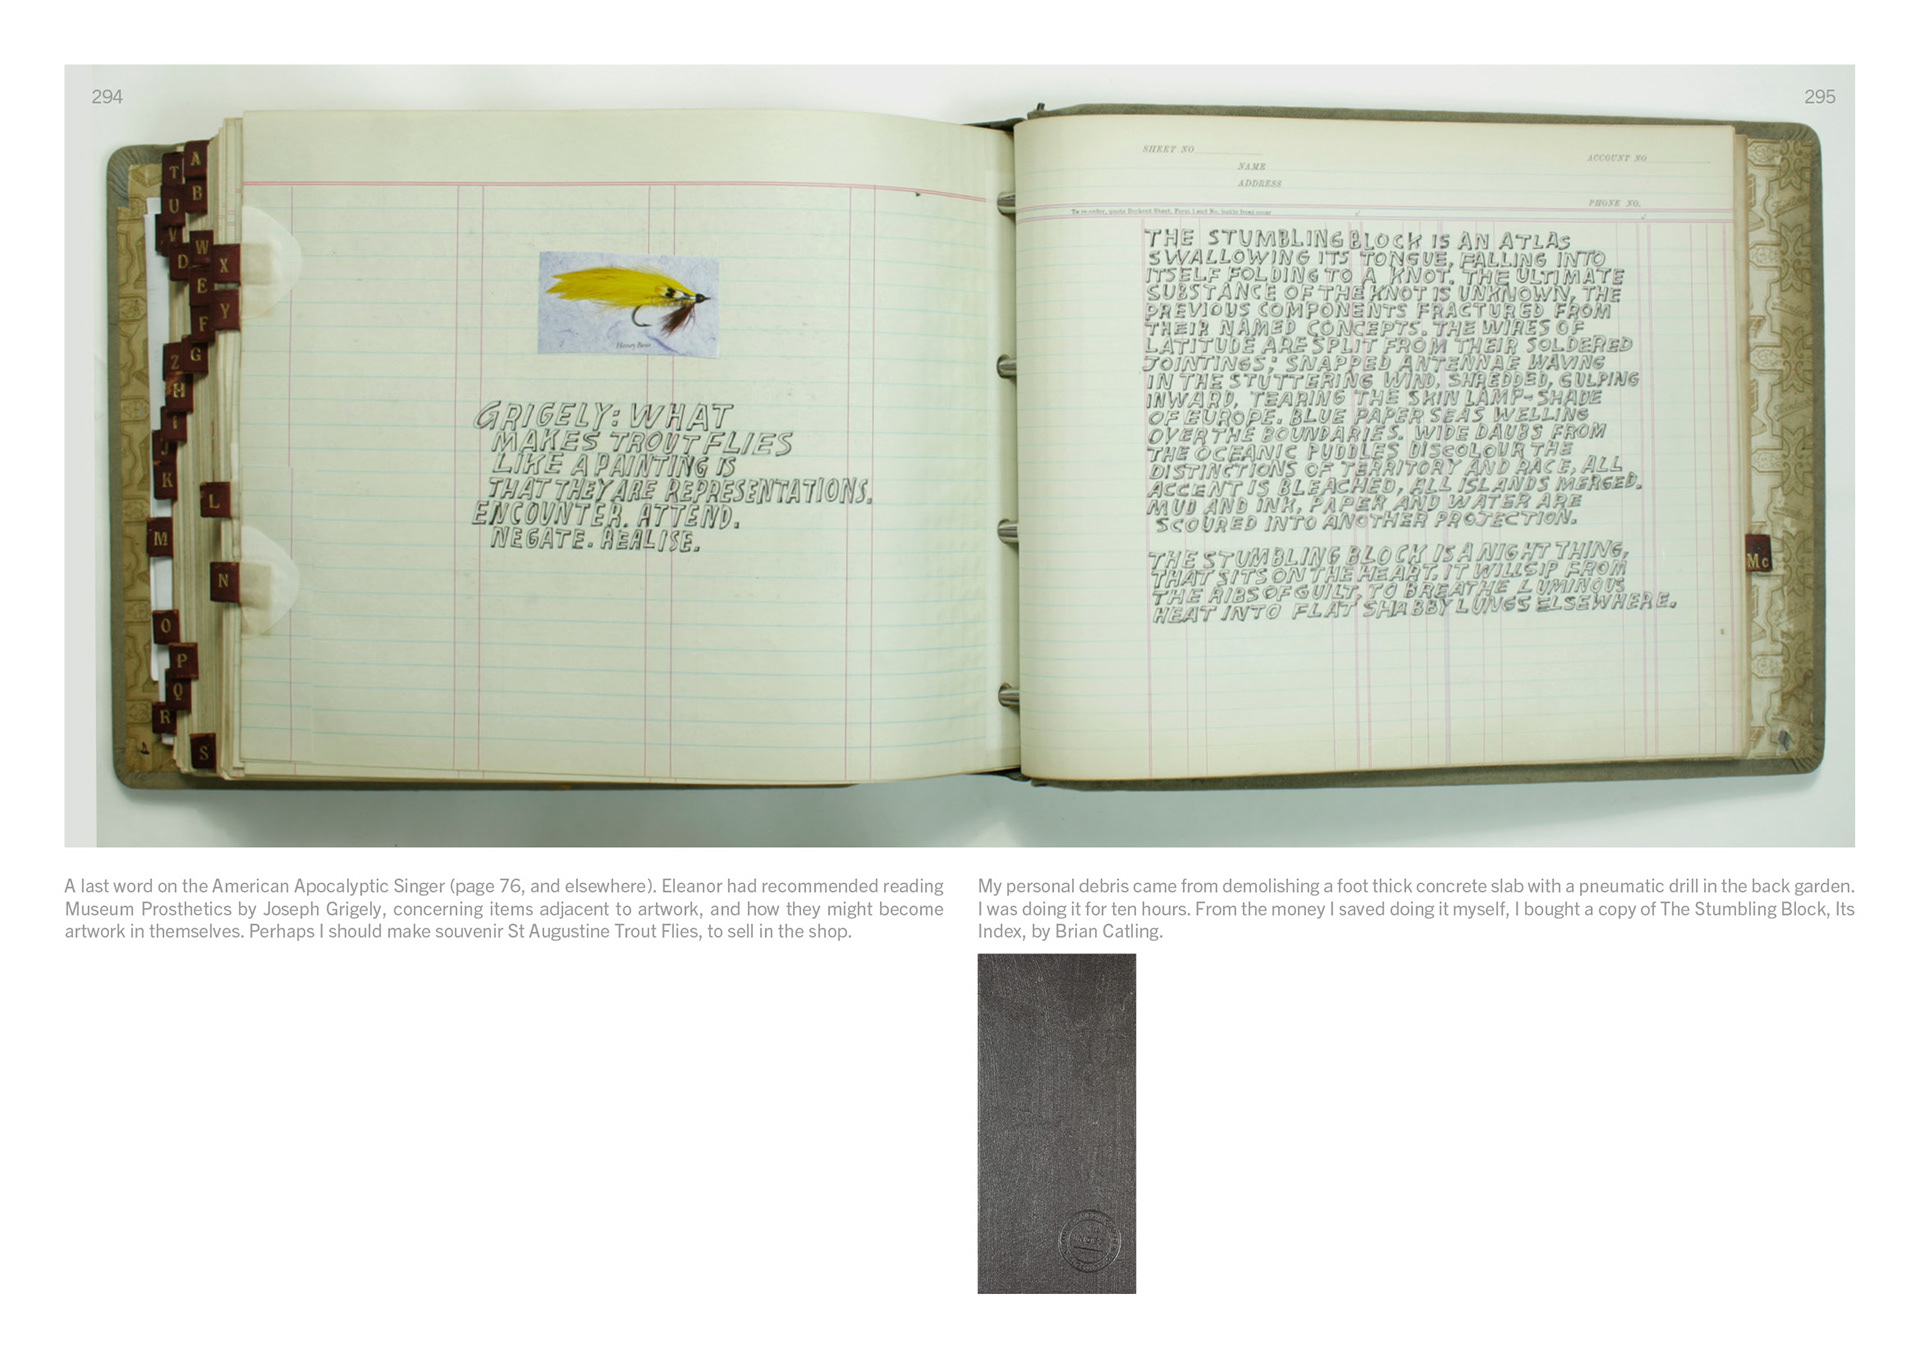 294
295
A
T
B
U
V
W
D
X
E
Y
F
G
Z
H
I
J
K
L
M
N
O
P
Q
R
S
Mc
GRIGELY: WHAT
MAKES TROUT FLIES
LIKE A PAINTING IS
THAT THEY ARE REPRESENTATIONS.
ENCOUNTER. ATTEND.
NEGATE. REALISE.
SHEET NO
NAME
ADDRESS
ACCOUNT NO
PHONE NO.
THE STUMBLING BLOCK IS AN ATLAS
SWALLOWING ITS TONGUE, FALLING INTO
ITSELF FOLDING TO A KNOT. THE ULTIMATE
SUBSTANCE OF THE KNOT IS UNKNOWN, THE
PREVIOUS COMPONENTS FRACTURED FROM
THEIR NAMED CONCEPTS. THE WIRES OF
LATITUDE ARE SPLIT FROM THEIR SOLDERED
JOINTINGS; SNAPPED ANTENNAE WAVING
IN THE STUTTERING WIND. SHREDDED, GULPING
INWARD, TEARING THE SKIN LAMP-SHADE
OF EUROPE. BLUE PAPER SEAS WELLING
OVER THE BOUNDARIES. WIDE DAUBS FROM
THE OCEANIC PUDDLES DISCOLOUR THE
DISTINCTIONS OF TERRITORY AND RACE, ALL
ACCENT IS BLEACHED, ALL ISLANDS MERGED.
MUD AND INK, PAPER AND WATER ARE
SCOURED INTO ANOTHER PROJECTION.
THE STUMBLING BLOCK IS A NIGHT THING,
THAT SITS ON THE HEART. IT WILL SIP FROM
THE RIBS OF GUILT, TO BREATHE LUMINOUS
HEAT INTO FLAT SHABBY LUNGS ELSEWHERE.
A last word on the American Apocalyptic Singer (page 76, and elsewhere). Eleanor had recommended reading
Museum Prosthetics by Joseph Grigely, concerning items adjacent to artwork, and how they might become
artwork in themselves. Perhaps I should make souvenir St Augustine Trout Flies, to sell in the shop.
My personal debris came from demolishing a foot thick concrete slab with a pneumatic drill in the back garden.
I was doing it for ten hours. From the money I saved doing it myself, I bought a copy of The Stumbling Block, Its
Index, by Brian Catling.